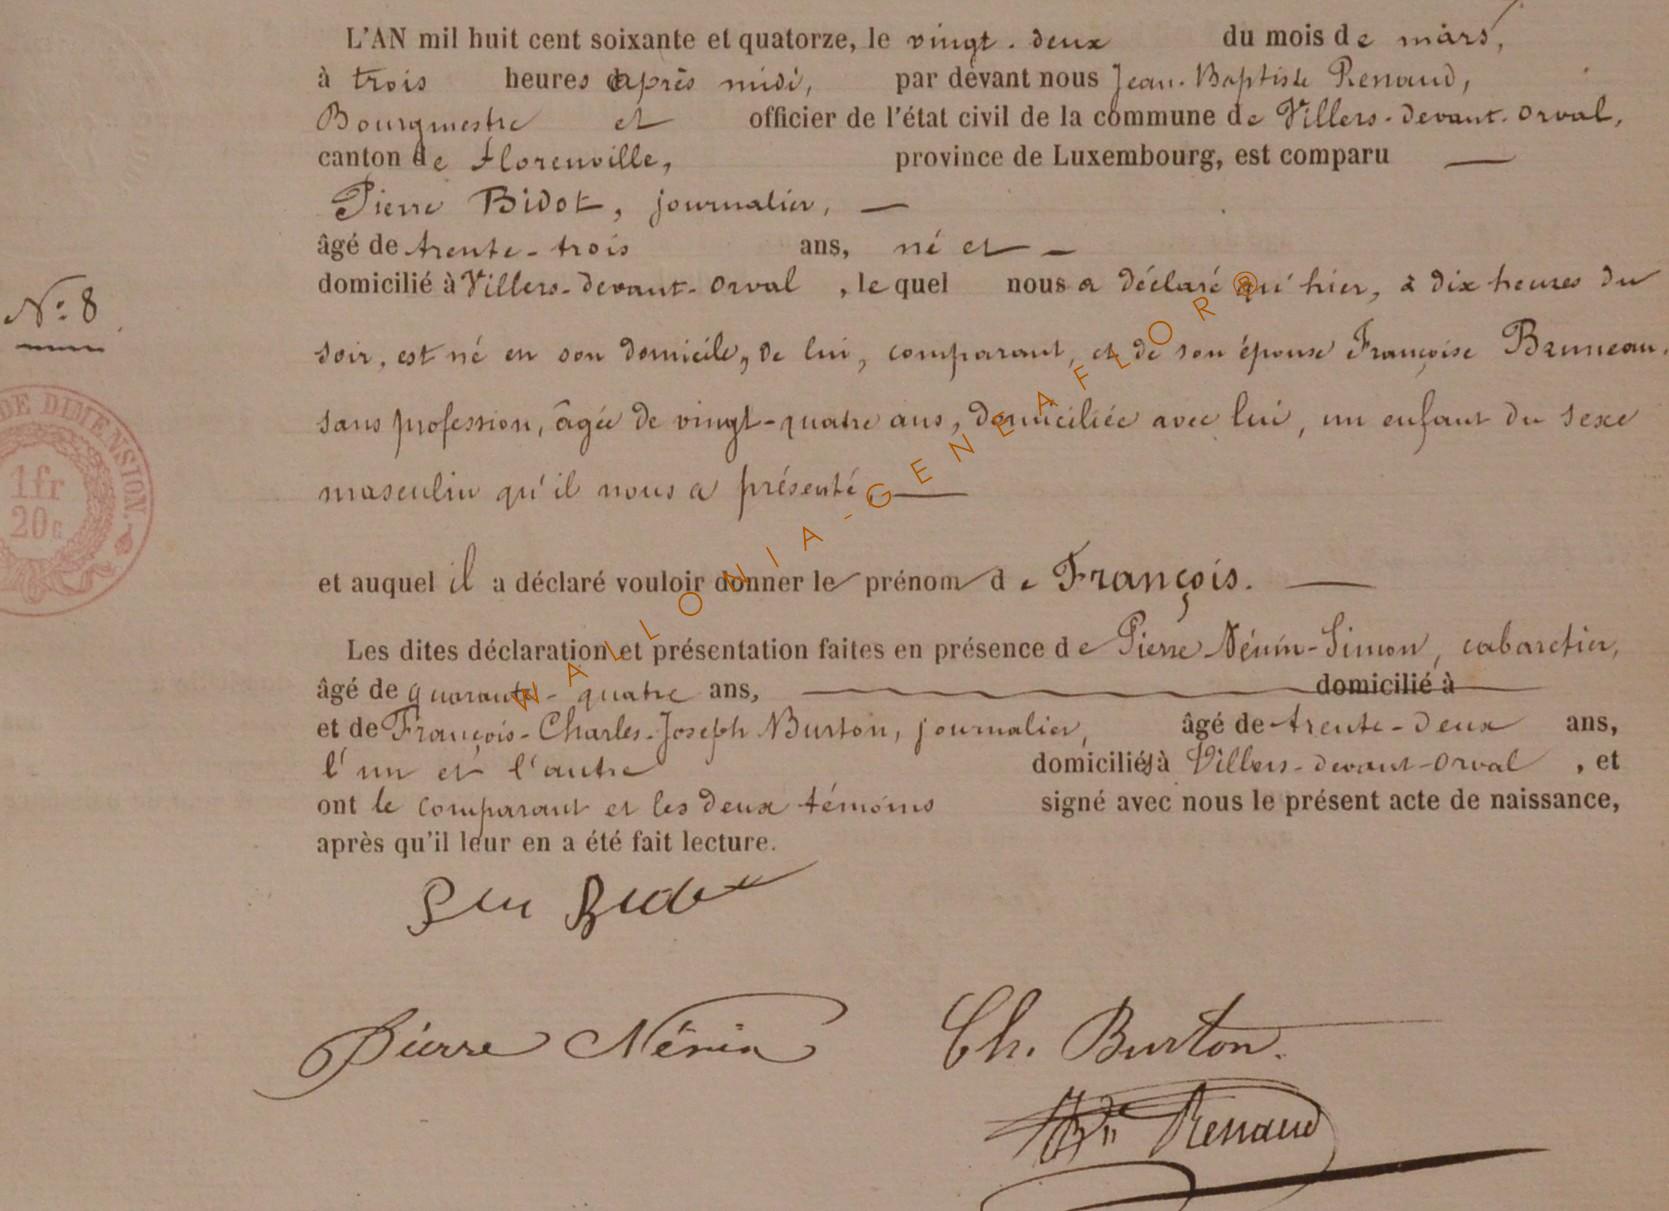 L'AN mil huit cent soixante et quatorze, le vingt-deux du mois de mars,
à trois heures après midi, par devant nous Jean-Baptiste Renaud,
Bourgmestre et officier de l'état civil de la commune de Villers-devant-Orval,
canton de Florenville, province de Luxembourg, est comparu —
Pierre Bidot, journalier, —
âgé de trente-trois ans, né et —
domicilié à Villers-devant-Orval, le quel nous a déclaré qu'hier, à dix heures du
N° 8
soir, est né en son domicile, de lui, comparant, et de son épouse Françoise Bruneau,
sans profession, âgée de vingt-quatre ans, domiciliée avec lui, un enfant du sexe
masculin qu'il nous a présenté, —
DE DIMENSION.
1fr
20c
et auquel il a déclaré vouloir donner le prénom de François. —
Les dites déclaration et présentation faites en présence de Pierre Nénin-Simon, cabaretier,
âgé de quarante-quatre ans, — domicilié à
et de François-Charles-Joseph Burton, journalier, âgé de trente-deux ans,
l'un et l'autre domiciliés à Villers-devant-Orval, et
ont le comparant et les deux témoins signé avec nous le présent acte de naissance,
après qu'il leur en a été fait lecture.
Pierre Nénin Ch. Burton.
Renaud
WALLONIA-GENEAFLOR®